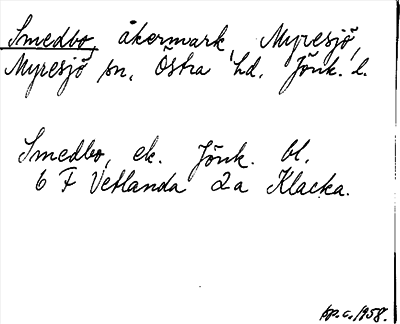 Smedbo, åkermark, Myresjö,
Myresjö sn, Östra hd. Jönk. l.
Smedbo, ek. Jönk. bl.
6 F Vetlanda 2a Klacka.
pp. a. 1958.